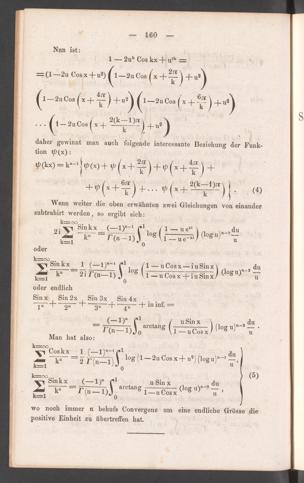 — 160 —
Nun ist:
1 − 2u^k Cos kx + u^{2k} =
= (1 − 2u Cos x + u²) (1 − 2u Cos (x + 2π/k) + u²)
(1 − 2u Cos (x + 4π/k) + u²) (1 − 2u Cos (x + 6π/k) + u²)
... (1 − 2u Cos (x + 2(k−1)π/k) + u²)
daher gewinnt man auch folgende interessante Beziehung der Funk-
tion ψ(x):
ψ(kx) = k^{n−1} { ψ(x) + ψ(x + 2π/k) + ψ(x + 4π/k) +
+ ψ(x + 6π/k) + ... ψ(x + 2(k−1)π/k) } . (4)
Wenn weiter die oben erwähnten zwei Gleichungen von einander
subtrahirt werden, so ergibt sich:
2i ∑_{k=1}^{k=∞} Sin kx/k^n = (−1)^{n−1}/Γ(n−1) ∫_0^1 log ((1 − u e^{xi})/(1 − u e^{−xi})) (log u)^{n−2} du/u
oder
∑_{k=1}^{k=∞} Sin kx/k^n = 1/2i (−1)^{n−1}/Γ(n−1) ∫_0^1 log ((1 − u Cos x − i u Sin x)/(1 − u Cos x + i u Sin x)) (log u)^{n−2} du/u
oder endlich
Sin x/1^n + Sin 2x/2^n + Sin 3x/3^n + Sin 4x/4^n + in inf. =
= (−1)^n/Γ(n−1) ∫_0^1 arctang (u Sin x/(1 − u Cos x)) (log u)^{n−2} du/u .
Man hat also:
∑_{k=1}^{k=∞} Cos kx/k^n = 1/2 (−1)^{n−1}/Γ(n−1) ∫_0^1 log [1 − 2u Cos x + u²] (log u)^{n−2} du/u
∑_{k=1}^{k=∞} Sin kx/k^n = (−1)^n/Γ(n−1) ∫_0^1 arctang u Sin x/(1 − u Cos x) (log u)^{n−2} du/u , } (5)
wo noch immer n behufs Convergenz um eine endliche Grösse die
positive Einheit zu übertreffen hat.